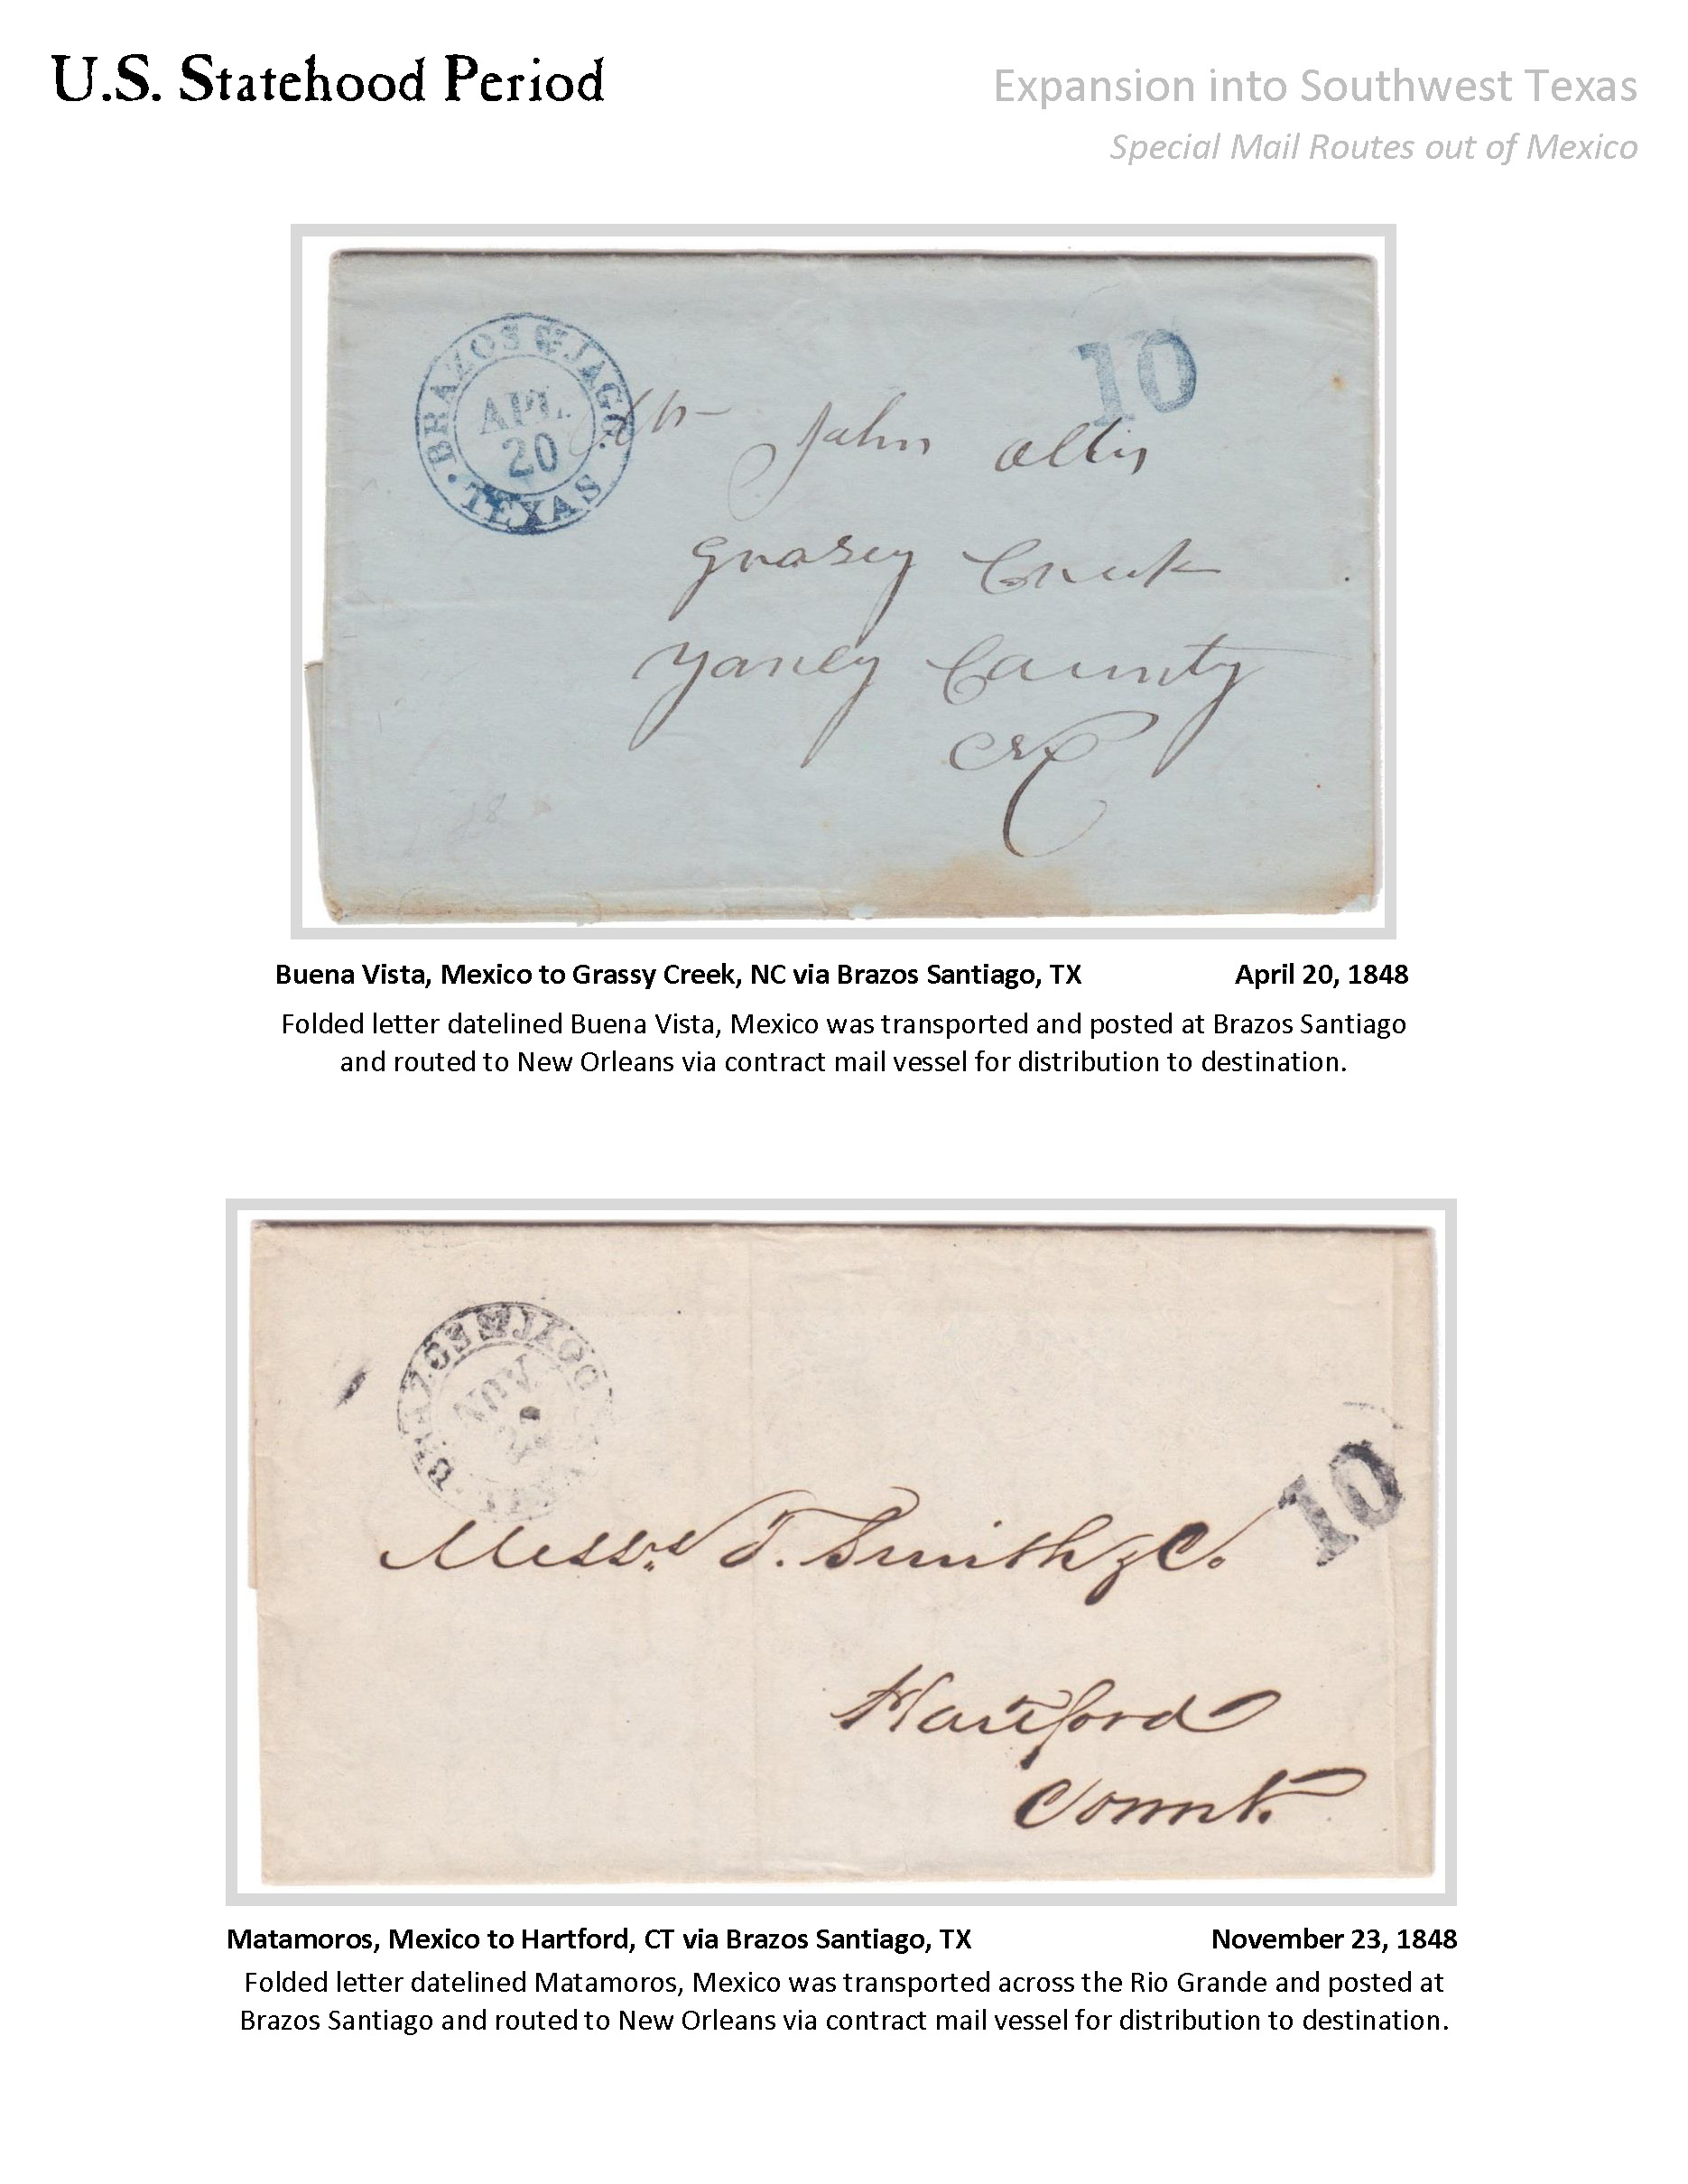 U.S. Statehood Period
Expansion into Southwest Texas
Special Mail Routes out of Mexico
BRAZOS JAGO.
APL.
20
TEXAS
10
Mr John
Grasey Creek
Yancy County
NC
Buena Vista, Mexico to Grassy Creek, NC via Brazos Santiago, TX April 20, 1848
Folded letter datelined Buena Vista, Mexico was transported and posted at Brazos Santiago
and routed to New Orleans via contract mail vessel for distribution to destination.
BRAZOS JAGO
NOV
10
Messrs T. Smith & Co.
Hartford
Connt.
Matamoros, Mexico to Hartford, CT via Brazos Santiago, TX November 23, 1848
Folded letter datelined Matamoros, Mexico was transported across the Rio Grande and posted at
Brazos Santiago and routed to New Orleans via contract mail vessel for distribution to destination.